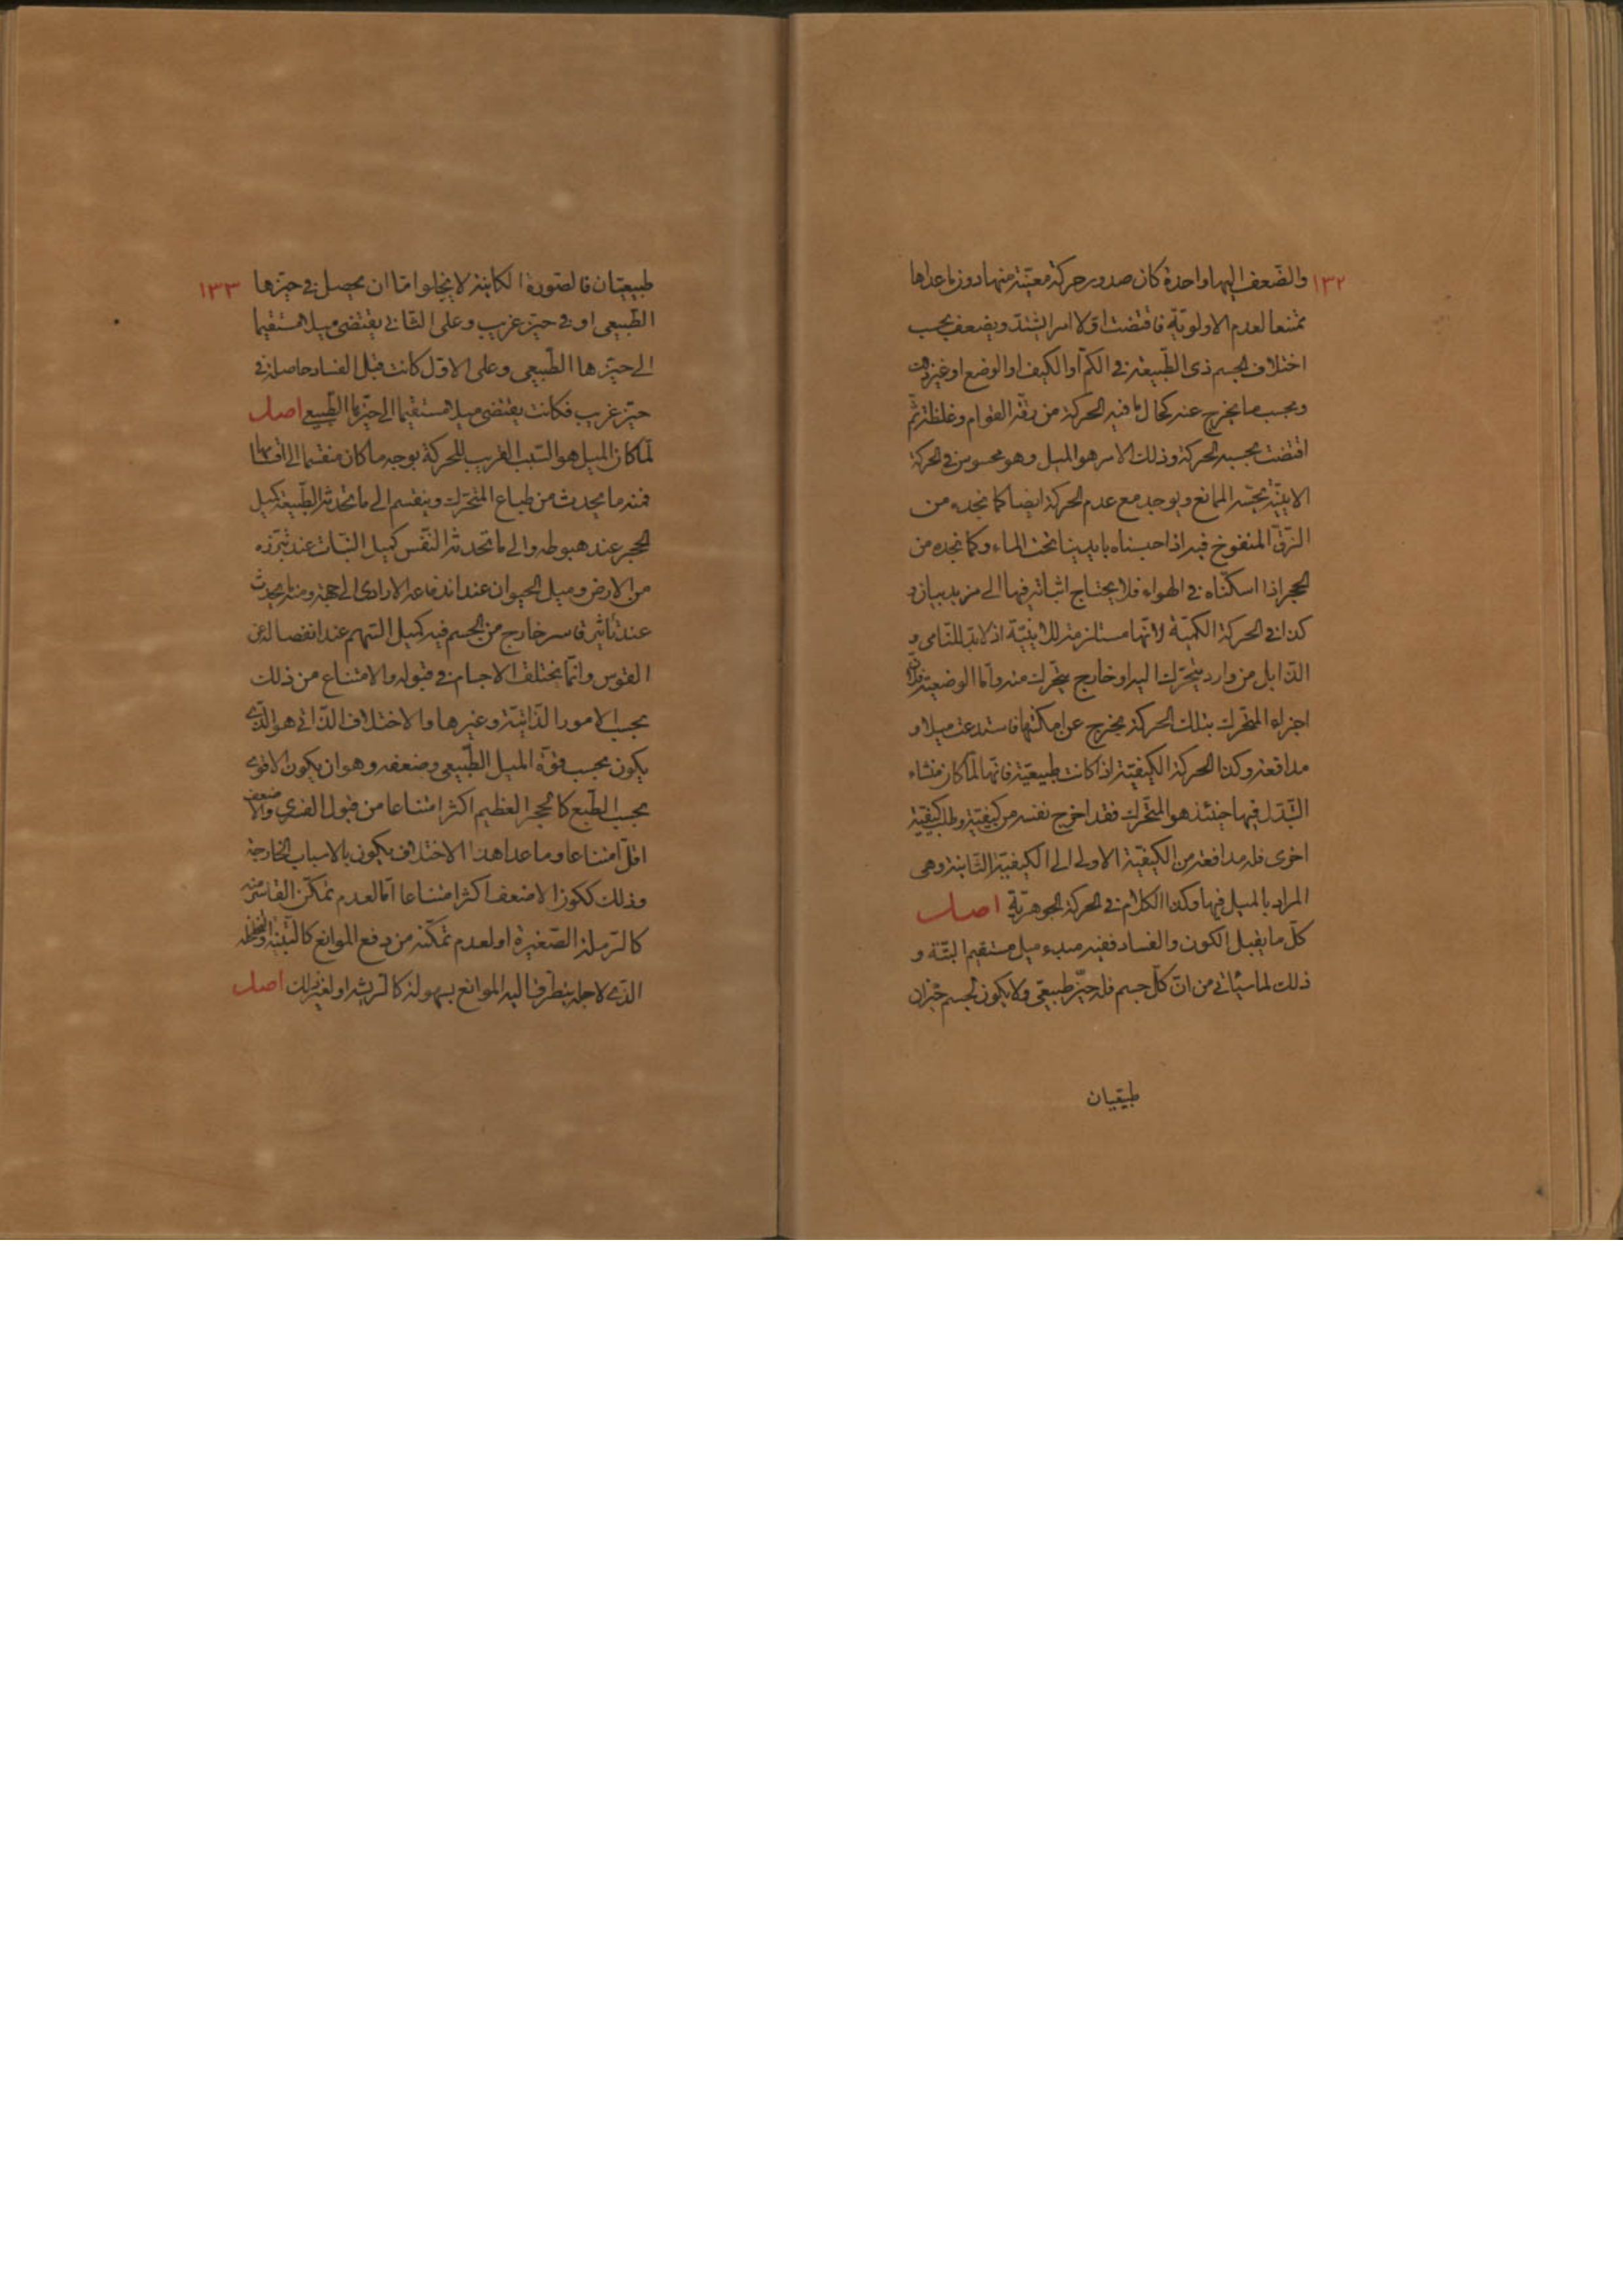 ١٣٢
والضّعف اليها واحدة كان صدور حركة معيّنة منها دون ما عداها
ممتنعا لعدم الاولويّة فاقتضت اوّلا امرا يشتدّ ويضعف بحسب
اختلاف الجسم ذى الطّبيعة فى الكمّ او الكيف او الوضع او غير ذلك
وبحسب ما يخرج عنه كحال ما فيه الحركة من رقّة القوام وغلظته ثمّ
اقتضت بحسبه الحركة وذلك الامر هو الميل وهو محسوس فى الحركة
الاينيّة بحسّه الممانع ويوجد مع عدم الحركة ايضا كما نجده من
الزّقّ المنفوخ فيه اذا حبسناه بايدينا تحت الماء وكما نجده من
الحجر اذا اسكنّاه فى الهواء فلا يحتاج اثباته فيها الى مزيد بيان و
كذا فى الحركة الكميّة لانّها مستلزمة للاينيّة اذ لا بدّ للنّامى و
الذّابل من وارد يتحرّك اليه او خارج يتحرّك منه وامّا الوضعيّة فلانّ
اجزاء المتحرّك بتلك الحركة يخرج عن امكنتها فاستدعت ميلا و
مدافعة وكذا الحركة الكيفيّة اذا كانت طبيعيّة فانّها لمّا كان منشاء
التّبدّل فيها حينئذ هو المتحرّك فقد اخرج نفسه من كيفيّة وطلب كيفيّة
اخرى فله مدافعة من الكيفيّة الاولى الى الكيفيّة الثّانية وهى
المراد بالميل فيها وكذا الكلام فى الحركة الجوهريّة اصل
كلّ ما يقبل الكون والفساد ففيه مبدء ميل مستقيم البتّة و
ذلك لما سيأتى من انّ كلّ جسم فله حيّز طبيعى ولا يكون لجسم حيّزان
طبيعيان
١٣٣
طبيعيّان فالصّورة الكاينة لا يخلوا امّا ان يحصل فى حيّزها
الطّبيعى او فى حيّز غريب وعلى الثّانى يقتضى ميلا مستقيما
الى حيّزها الطّبيعى وعلى الاوّل كانت قبل الفساد حاصلة فى
حيّز غريب فكانت يقتضى ميلا مستقيما الى حيّزها الطّبيعى اصل
لمّا كان الميل هو السّبب القريب للحركة بوجه ما كان منقسما الى اقسامها
فمنه ما يحدث من طباع المتحرّك وينقسم الى ما تحدثه الطّبيعة كميل
الحجر عند هبوطه والى ما تحدثه النّفس كميل النّبات عند تبرّزه
من الارض وميل الحيوان عند اندفاعه الارادى الى جهة ومنه ما يحدث
عند تأثير قاسر خارج من الجسم فيه كميل السّهم عند انفصاله عن
القوس وانّما يختلف الاجسام فى قبوله والامتناع من ذلك
بحسب الامور الذّاتيّة وغيرها والاختلاف الذّاتى هو الّذى
يكون بحسب قوّة الميل الطّبيعى وضعفه وهو ان يكون الاقوى
بحسب الطّبع كالحجر العظيم اكثر امتناعا من قبول القسرى والاضعف
اقلّ امتناعا وما عدا هذا الاختلاف يكون بالاسباب الخارجة
وذلك ككون الاضعف اكثر امتناعا امّا لعدم تمكّن القاسر منه
كالرّملة الصّغيرة او لعدم تمكّنه من دفع الموانع كالتّبنة
الّذى لاجله يتطرّق اليه الموانع بسهولة كالرّيشة او لغير ذلك اصل